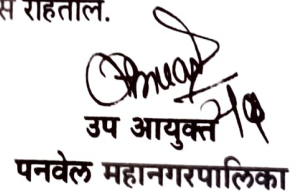 स राहतील.
उप आयुक्त
पनवेल महानगरपालिका